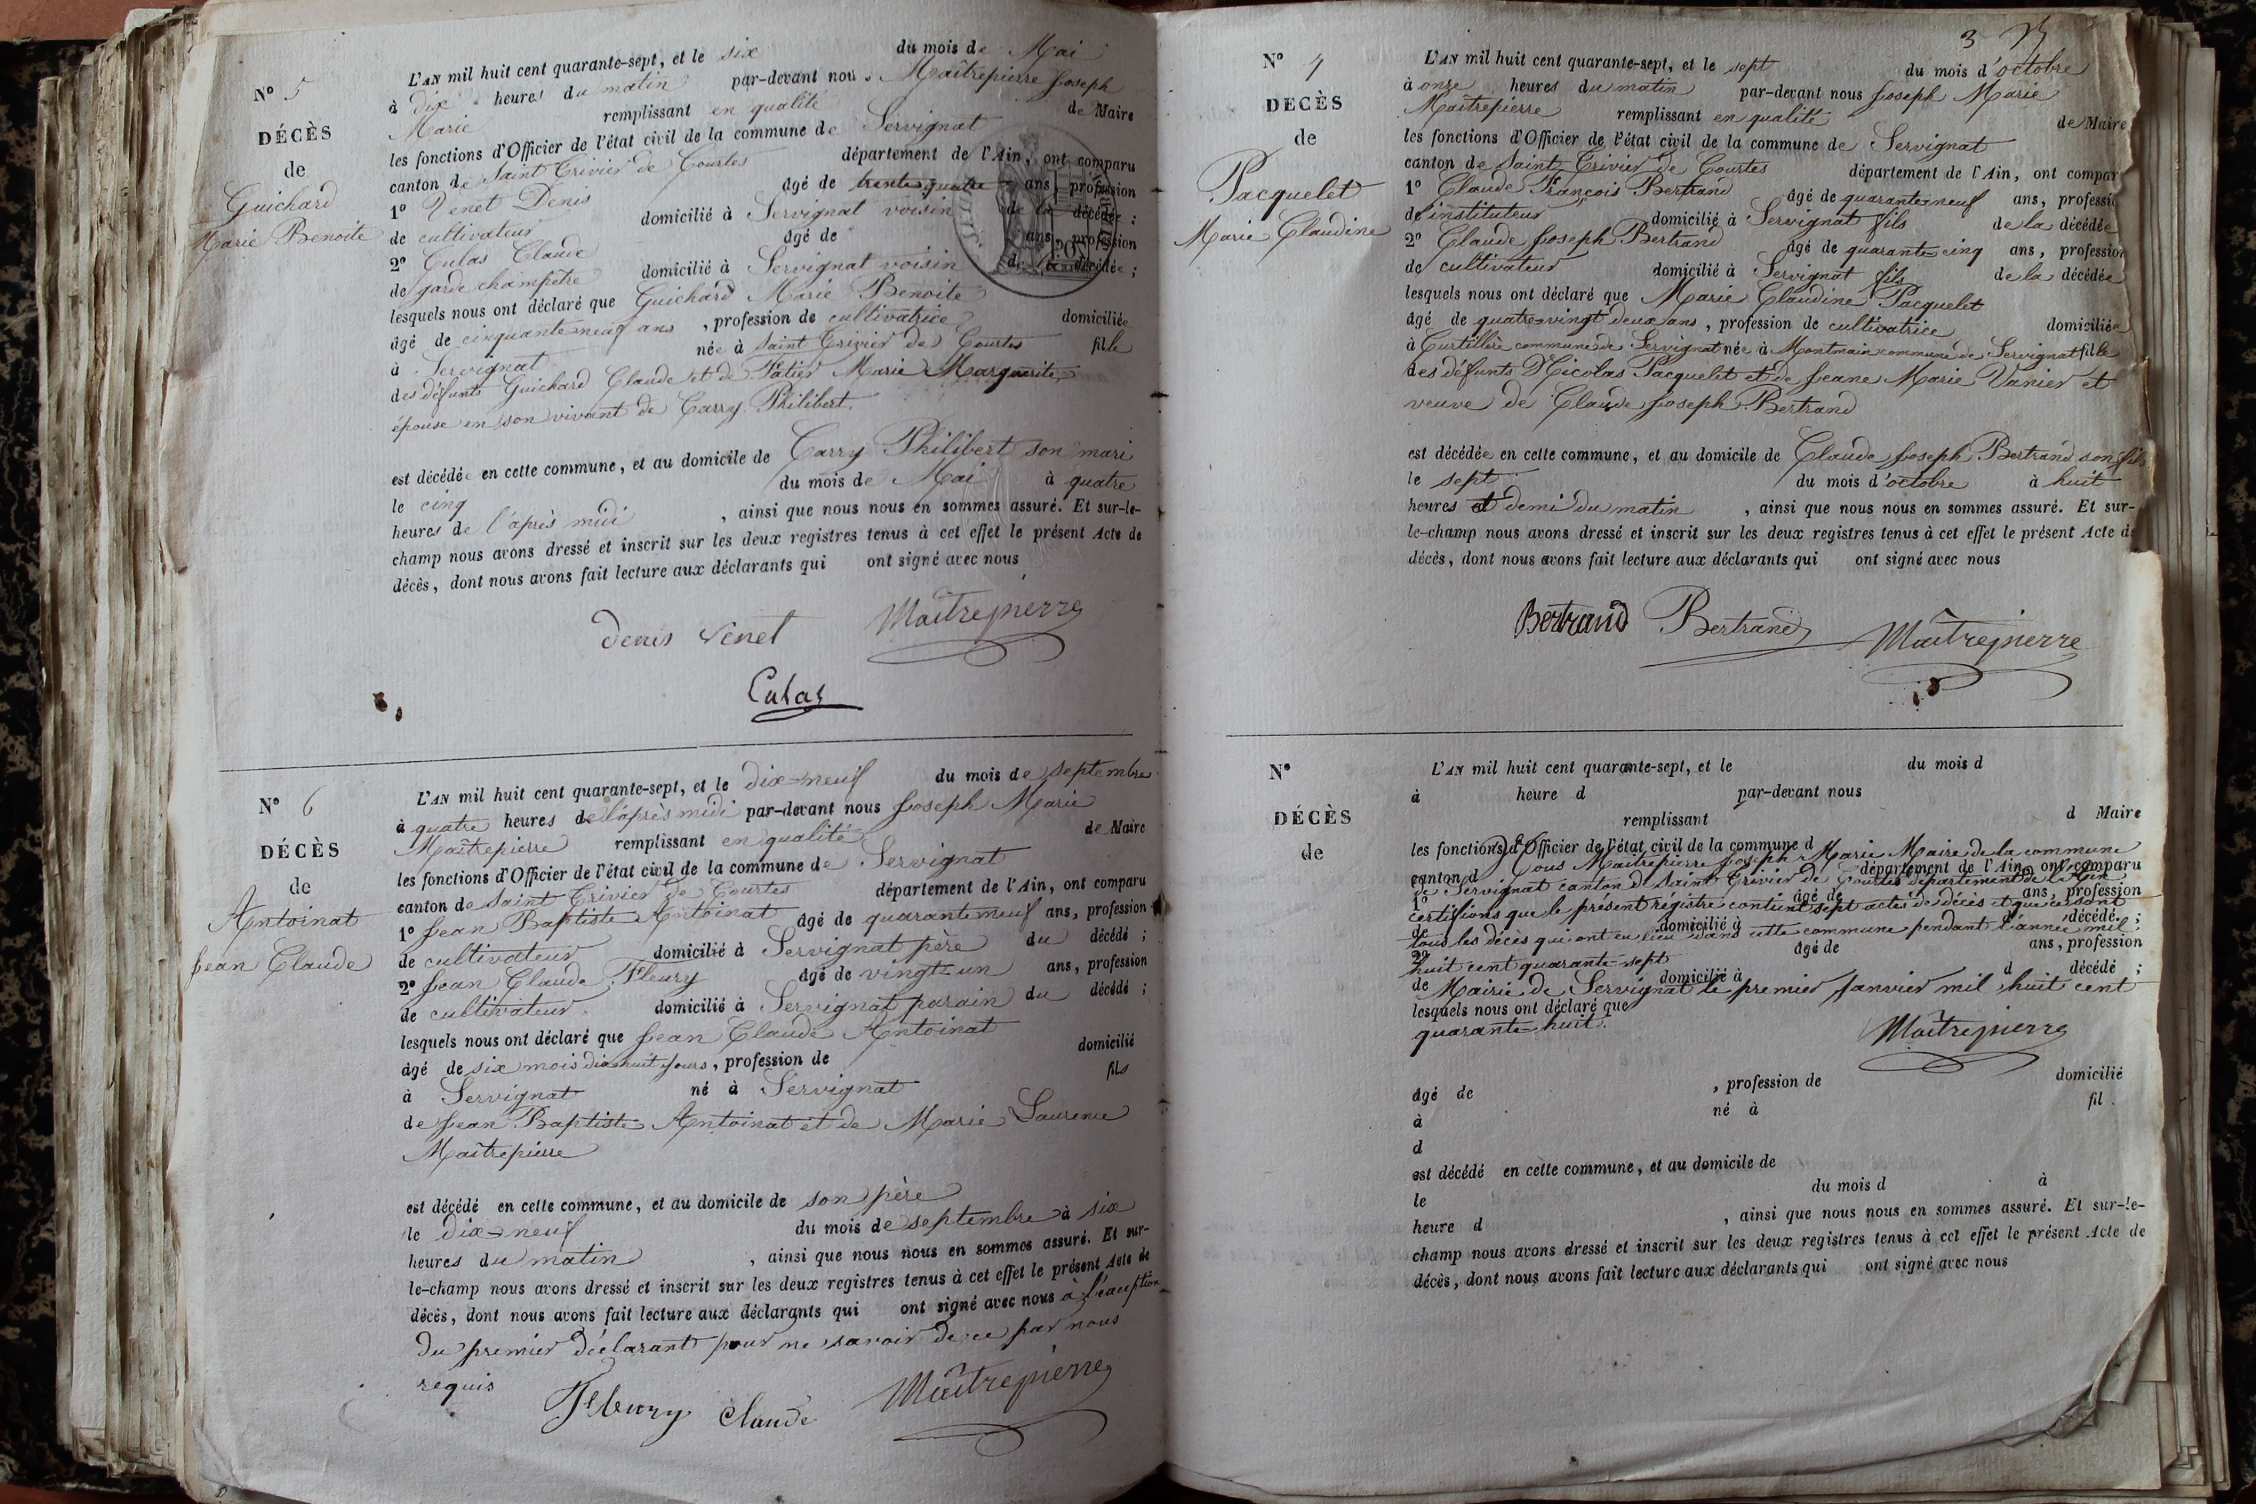 N° 5
DÉCÈS
de
Guichard
Marie Benoite
L'AN mil huit cent quarante-sept, et le six du mois de Mai
à dix heures du matin par-devant nous Maîtrepierre Joseph
Marie remplissant en qualité de Maire
les fonctions d'Officier de l'état civil de la commune de Servignat
canton de Saint Trivier de Courtes département de l'Ain, ont comparu
1° Venet Denis âgé de trente quatre ans, profession
de cultivateur domicilié à Servignat voisin de la décédée ;
2° Culas Claude âgé de ans, profession
de garde champêtre domicilié à Servignat voisin de la décédée ;
lesquels nous ont déclaré que Guichard Marie Benoite
âgé de cinquante neuf ans , profession de cultivatrice domiciliée
à Servignat née à Saint Trivier de Courtes fille
des défunts Guichard Claude et de Marie Marguerite
épouse en son vivant de Carry Philibert.
est décédée en cette commune, et au domicile de Carry Philibert son mari
le cinq du mois de Mai à quatre
heures de l'après midi , ainsi que nous nous en sommes assuré. Et sur-le-
champ nous avons dressé et inscrit sur les deux registres tenus à cet effet le présent Acte de
décès, dont nous avons fait lecture aux déclarants qui ont signé avec nous
denis Venet Maîtrepierre
Culas
N° 6
DÉCÈS
de
Antoinat
Jean Claude
L'AN mil huit cent quarante-sept, et le dix-neuf du mois de septembre
à quatre heures de l'après midi par-devant nous Joseph Marie
Maîtrepierre remplissant en qualité de Maire
les fonctions d'Officier de l'état civil de la commune de Servignat
canton de Saint Trivier de Courtes département de l'Ain, ont comparu
1° Jean Baptiste Antoinat âgé de quarante neuf ans, profession
de cultivateur domicilié à Servignat père du décédé ;
2° Jean Claude Fleury âgé de vingt-un ans, profession
de cultivateur domicilié à Servignat parain du décédé ;
lesquels nous ont déclaré que Jean Claude Antoinat
âgé de six mois dix huit jours, profession de domicilié
à Servignat né à Servignat fils
de Jean Baptiste Antoinat et de Marie Laurence
Maîtrepierre
est décédé en cette commune, et au domicile de son père
le dix-neuf du mois de septembre à six
heures du matin , ainsi que nous nous en sommes assuré. Et sur-
le-champ nous avons dressé et inscrit sur les deux registres tenus à cet effet le présent Acte de
décès, dont nous avons fait lecture aux déclarants qui ont signé avec nous à l'éception
du premier déclarant pour ne savoir de ce par nous
requis
Fleury Claude Maîtrepierre
3
N° 7
DÉCÈS
de
Pacquelet
Marie Claudine
L'AN mil huit cent quarante-sept, et le sept du mois d'octobre
à onze heures du matin par-devant nous Joseph Marie
Maîtrepierre remplissant en qualité de Maire
les fonctions d'Officier de l'état civil de la commune de Servignat
canton de Saint Trivier de Courtes département de l'Ain, ont compar
1° Claude François Bertrand âgé de quarante neuf ans, professio
de instituteur domicilié à Servignat fils de la décédée
2° Claude Joseph Bertrand âgé de quarante-cinq ans, profession
de cultivateur domicilié à Servignat fils de la décédée
lesquels nous ont déclaré que Marie Claudine Pacquelet
âgé de quatre-vingt deux ans , profession de cultivatrice domiciliée
à Curtillère commune de Servignat née à Montmain commune de Servignat fille
des défunts Nicolas Pacquelet et de Jeane Marie Vanier et
veuve de Claude Joseph Bertrand
est décédée en cette commune, et au domicile de Claude Joseph Bertrand son fils
le sept du mois d'octobre à huit
heures et demi du matin , ainsi que nous nous en sommes assuré. Et sur-
le-champ nous avons dressé et inscrit sur les deux registres tenus à cet effet le présent Acte de
décès, dont nous avons fait lecture aux déclarants qui ont signé avec nous
Bertrand Bertrand Maîtrepierre
N°
DÉCÈS
de
L'AN mil huit cent quarante-sept, et le du mois d
à heure d par-devant nous
remplissant d Maire
les fonctions d'Officier de l'état civil de la commune d
Nous Maitrepierre Joseph Marie Maire de la commune
canton d département de l'Ain, ont comparu
de Servignat canton de Saint Trivier de Courtes département de l'Ain
1° âgé de ans, profession
certifions que le présent registre contient sept actes de décès et que ce sont
de domicilié à décédé ;
tous les décès qui ont eu lieu dans cette commune pendant l'année mil
2° âgé de ans, profession
huit cent quarante-sept
de domicilié à d décédé ;
Mairie de Servignat le premier Janvier mil huit cent
lesquels nous ont déclaré que
quarante-huit.
Maîtrepierre
âgé de , profession de domicilié
à né à fil
d
est décédé en cette commune, et au domicile de
le du mois d à
heure d , ainsi que nous nous en sommes assuré. Et sur-le-
champ nous avons dressé et inscrit sur les deux registres tenus à cet effet le présent Acte de
décès, dont nous avons fait lecture aux déclarants qui ont signé avec nous